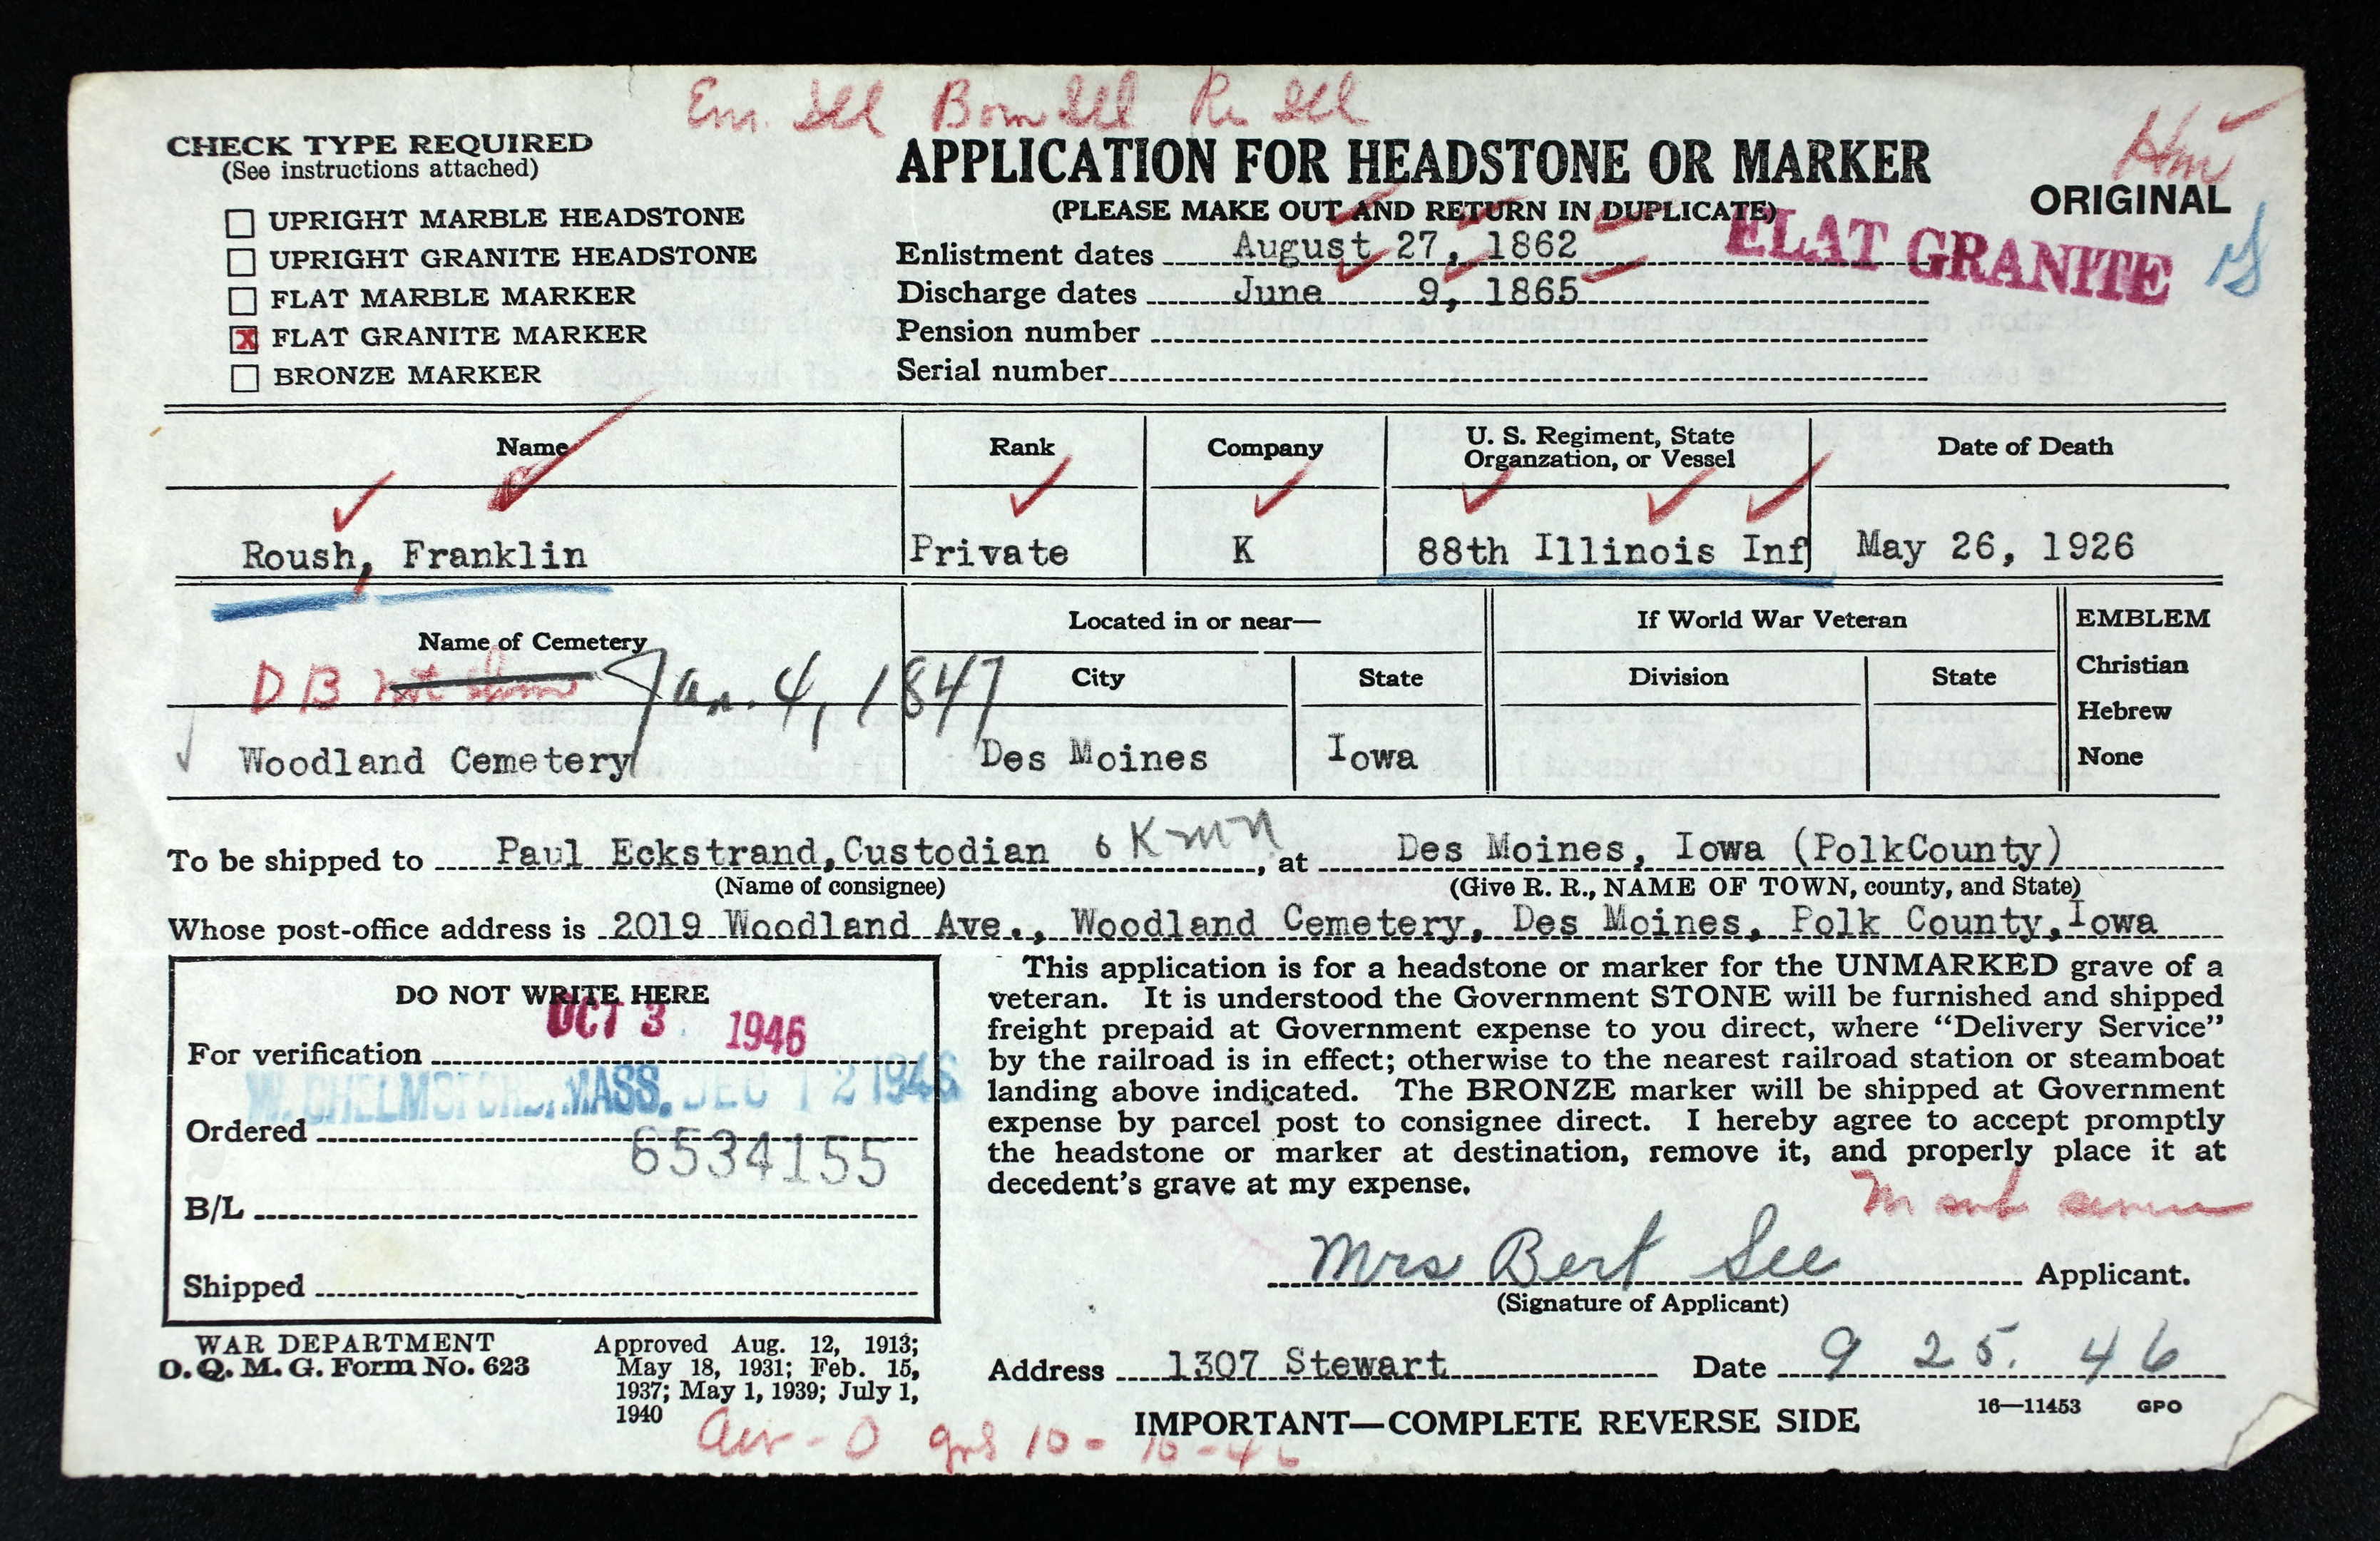 Em. Bom
CHECK TYPE REQUIRED
(See instructions attached)
UPRIGHT MARBLE HEADSTONE
UPRIGHT GRANITE HEADSTONE
FLAT MARBLE MARKER
X FLAT GRANITE MARKER
BRONZE MARKER
APPLICATION FOR HEADSTONE OR MARKER
(PLEASE MAKE OUT AND RETURN IN DUPLICATE)
ORIGINAL
FLAT GRANITE
Enlistment dates August 27, 1862
Discharge dates June 9, 1865
Pension number
Serial number
Name Rank Company U. S. Regiment, State
Organzation, or Vessel Date of Death
Roush, Franklin Private K 88th Illinois Inf May 26, 1926
Name of Cemetery Located in or near— If World War Veteran EMBLEM
City State Division State Christian
Hebrew
None
D B Jan. 4, 1847
Woodland Cemetery Des Moines Iowa
To be shipped to Paul Eckstrand, Custodian, at Des Moines, Iowa (PolkCounty)
(Name of consignee) (Give R. R., NAME OF TOWN, county, and State)
Whose post-office address is 2019 Woodland Ave., Woodland Cemetery, Des Moines, Polk County, Iowa
DO NOT WRITE HERE
OCT 3 1946
For verification
W. CHELMSFORD, MASS. DEC 12 1946
Ordered
6534155
B/L
Shipped
This application is for a headstone or marker for the UNMARKED grave of a
veteran. It is understood the Government STONE will be furnished and shipped
freight prepaid at Government expense to you direct, where “Delivery Service”
by the railroad is in effect; otherwise to the nearest railroad station or steamboat
landing above indicated. The BRONZE marker will be shipped at Government
expense by parcel post to consignee direct. I hereby agree to accept promptly
the headstone or marker at destination, remove it, and properly place it at
decedent's grave at my expense.
Mrs Bert See Applicant.
(Signature of Applicant)
Address 1307 Stewart Date 9 25. 46
WAR DEPARTMENT
O. Q. M. G. Form No. 623
Approved Aug. 12, 1913;
May 18, 1931; Feb. 15,
1937; May 1, 1939; July 1,
1940
IMPORTANT—COMPLETE REVERSE SIDE
16—11453 GPO
10-16-46